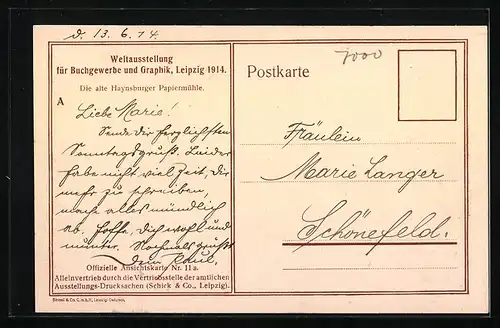 d. 13. 6. 14.
7000
Weltausstellung
für Buchgewerbe und Graphik, Leipzig 1914.
Die alte Haynsburger Papiermühle.
A
Liebe Marie!
Sende Dir herzlichsten
Sonntagsgruß. Leider
habe nicht viel Zeit, Dir
mehr zu schreiben,
mache alles mündlich
ab. Hoffe, Dich wohl und
munter. Nochmals grüßt
Dein Paul.
Offizielle Ansichtskarte Nr. 11a.
Alleinvertrieb durch die Vertriebsstelle der amtlichen
Ausstellungs-Drucksachen (Schick & Co., Leipzig).
Postkarte
Fräulein
Marie Langer
Schönefeld.